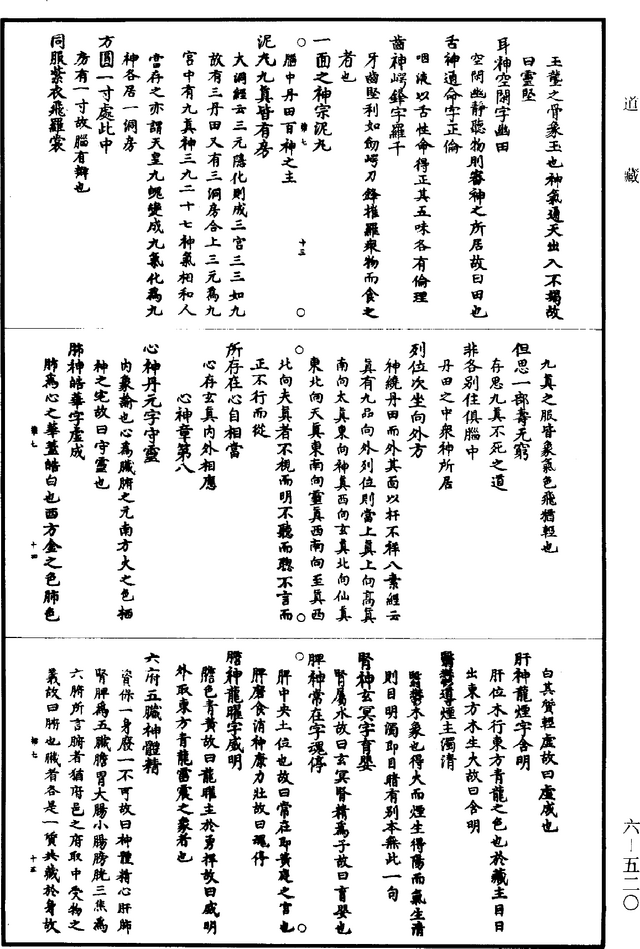 道藏
玉壟之骨象玉也神氣通天出入不竭故
曰靈堅
耳神空閑字幽田
空閑幽靜聽物則審神之所居故曰田也
舌神通命字正倫
咽液以舌性命得正其五味各有倫理
齒神崿鋒字羅千
牙齒堅利如劒崿刀鋒摧羅衆物而食之
者也
一面之神宗泥丸
腦中丹田百神之主
泥丸九真皆有房
大洞經云三元隱化則成三宮三三如九
故有三丹田又有三洞房合上三元爲九
宮中有九真神三九二十七神氣相和人
當存之亦謂天皇九魄變成九氣化爲九
神各居一洞房
方圓一寸處此中
房有一寸故腦有瓣也
同服紫衣飛羅裳
九真之服皆象氣色飛猶輕也
但思一部壽无窮
存思九真不死之道
非各別住俱腦中
丹田之中衆神所居
列位次坐向外方
神統丹田而外其面以扞不祥八素經云
真有九品向外列位則當上真上向高真
南向太真東向神真西向玄真北向仙真
東北向天真東南向靈真西南向至真西
北向夫真者不視而明不聽而聰不言而
正不行而從
所存在心自相當
心存玄真內外相應
心神章第八
心神丹元字守靈
內象諭也心爲臟腑之元南方火之色栖
神之宅故曰守靈也
肺神皓華字虛成
肺爲心之華蓋皓白也西方金之色肺色
白其質輕虛故曰虛成也
肝神龍煙字含明
肝位木行東方青龍之色也於藏主目日
出東方木生火故曰含明
翳鬱導煙主濁清
翳鬱木象也得火而煙生得陽而氣生清
則目明濁即目暗有別本無此一句
腎神玄冥字育嬰
腎屬水故曰玄冥腎精爲子故曰育嬰也
脾神常在字魂停
脾中央土位也故曰常在即黃庭之宮也
脾磨食消神康力壯故曰魂停
膽神龍曜字威明
膽色青黃故曰龍曜主於勇捍故曰威明
外取東方青龍雷震之象者也
六府五臟神體精
資保一身廢一不可故曰神體精心肝肺
腎脾爲五臟膽胃大腸小腸膀胱三焦爲
六腑所言腑者猶府邑之府取中受物之
義故曰腑也臟者各是一質共藏於身故
六—五二〇